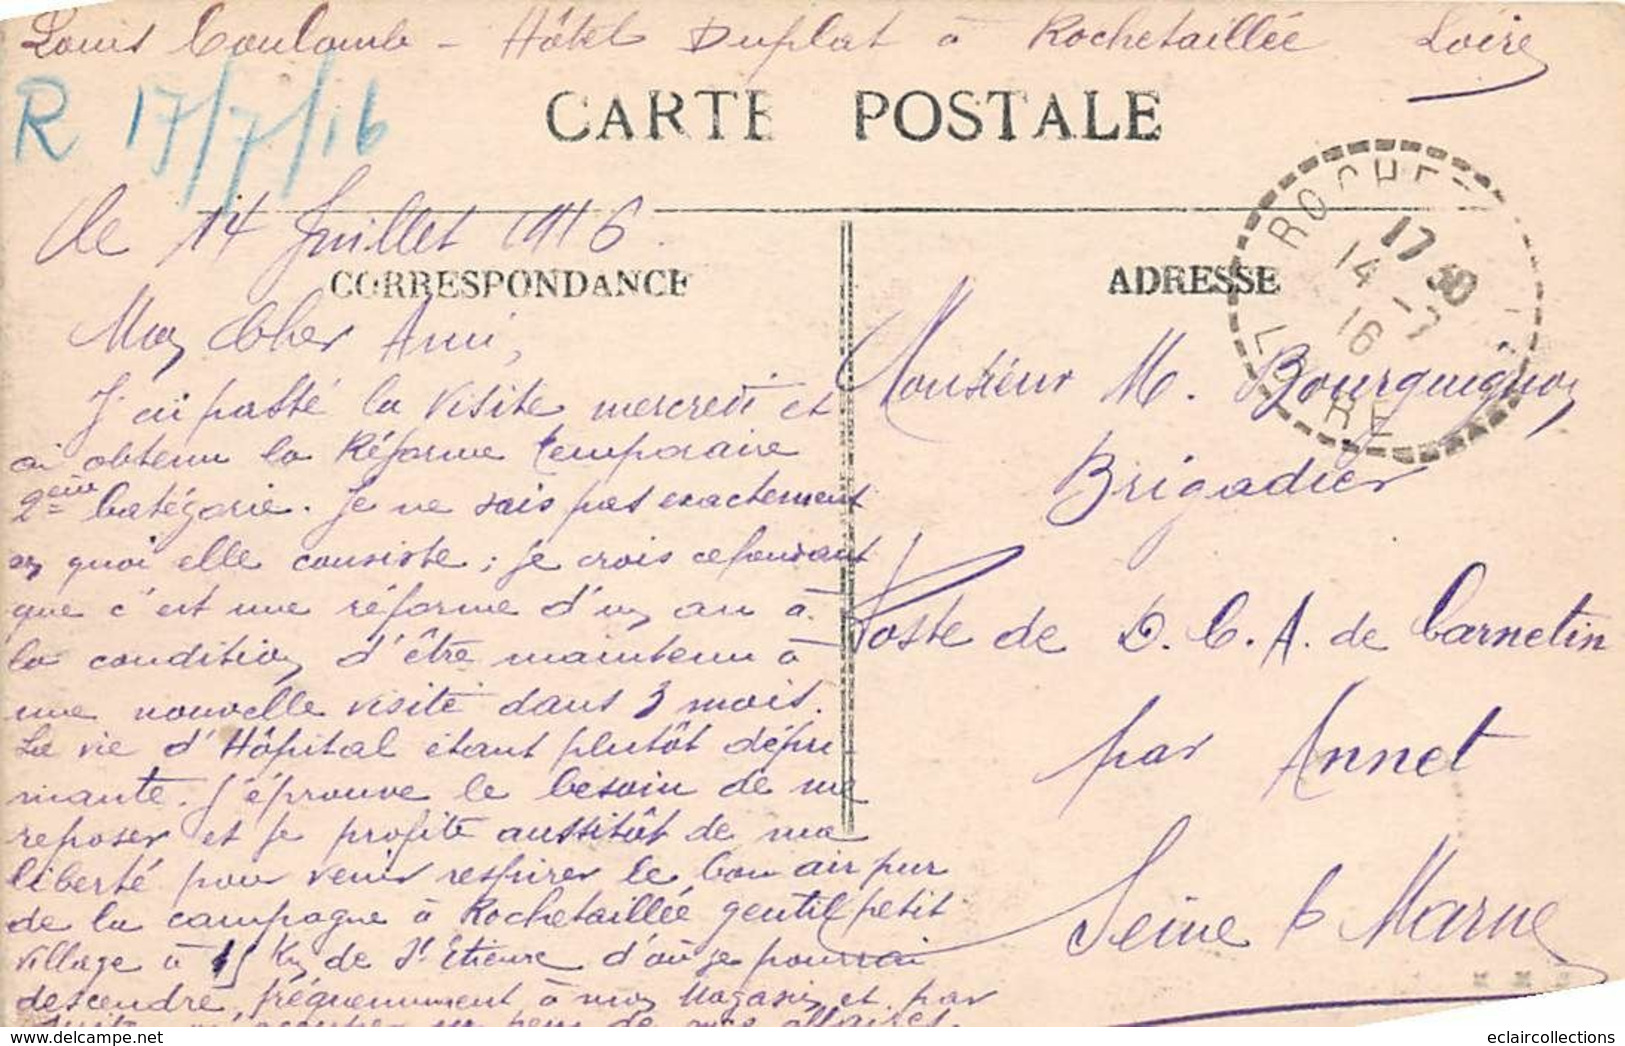 Louis Coulomb - Hôtel Duplat à Rochetaillée Loire
R 17/7/16
CARTE POSTALE
Le 14 Juillet 1916.
CORRESPONDANCE
Mon Cher Ami,
J'ai passé la visite mercredi et
ai obtenu la Réforme temporaire
2ème Catégorie. Je ne sais pas exactement
en quoi elle consiste ; je crois cependant
que c'est une réforme d'un an à
la condition d'être maintenu à
une nouvelle visite dans 3 mois.
La vie d'Hôpital étant plutôt dépri-
mante. J'éprouve le besoin de me
reposer et je profite aussitôt de ma
liberté pour venir respirer le bon air pur
de la campagne à Rochetaillée gentil petit
village à Km de St Etienne d'où je pourrai
descendre, fréquemment à mon Magasin et par
suite m'occuper un peu de mes affaires.
ADRESSE
Monsieur M. Bourguignon
Brigadier
Poste de D.C.A. de Carnetin
par Annet
Seine & Marne
ROCHET
17 30
14 -7
16
LOIRE
eclaircollections